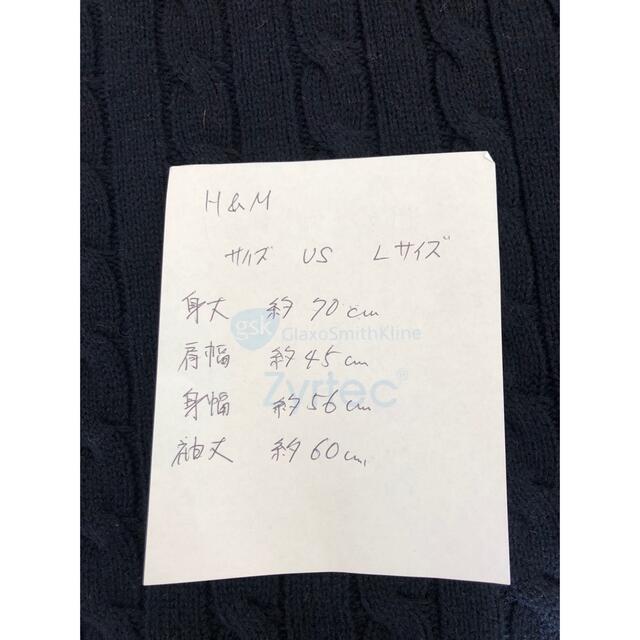 H&M
サイズ US Lサイズ
身丈 約70cm
gsk GlaxoSmithKline
肩幅 約45cm
Zyrtec®
身幅 約56cm
袖丈 約60cm